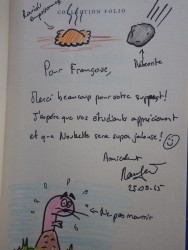 Ravioli
COLLECTION FOLIO
Météorite
Pour Françoise,
Merci beaucoup pour votre support!
J'espère que vos étudiants apprécieront
et que Norbette sera super jalouse!
Amicalement
25.09.15
Ne pas mourir